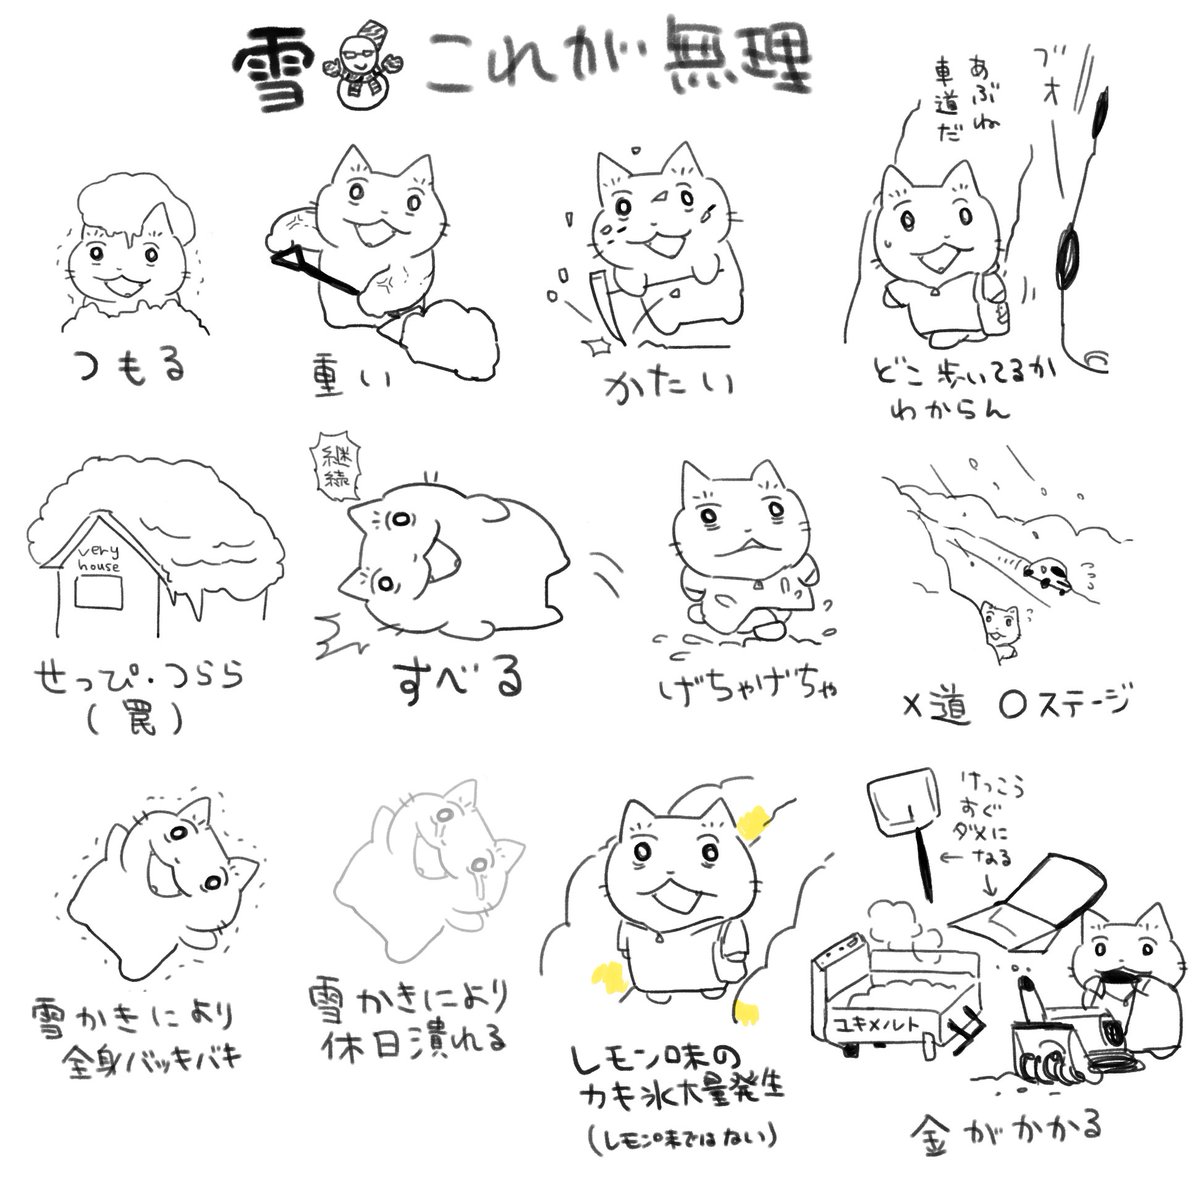 雪 これが無理
つもる
重い
かたい
あぶね
車道だ
ブオ
どこ歩いてるか
わからん
very
house
せっぴ・つらら
(罠)
継続
すべる
げちゃげちゃ
×道 ○ステージ
雪かきにより
全身バッキバキ
雪かきにより
休日潰れる
レモン味の
カキ氷大量発生
(レモン味ではない)
けっこう
すぐ
ダメに
なる
ユキメルト
金がかかる